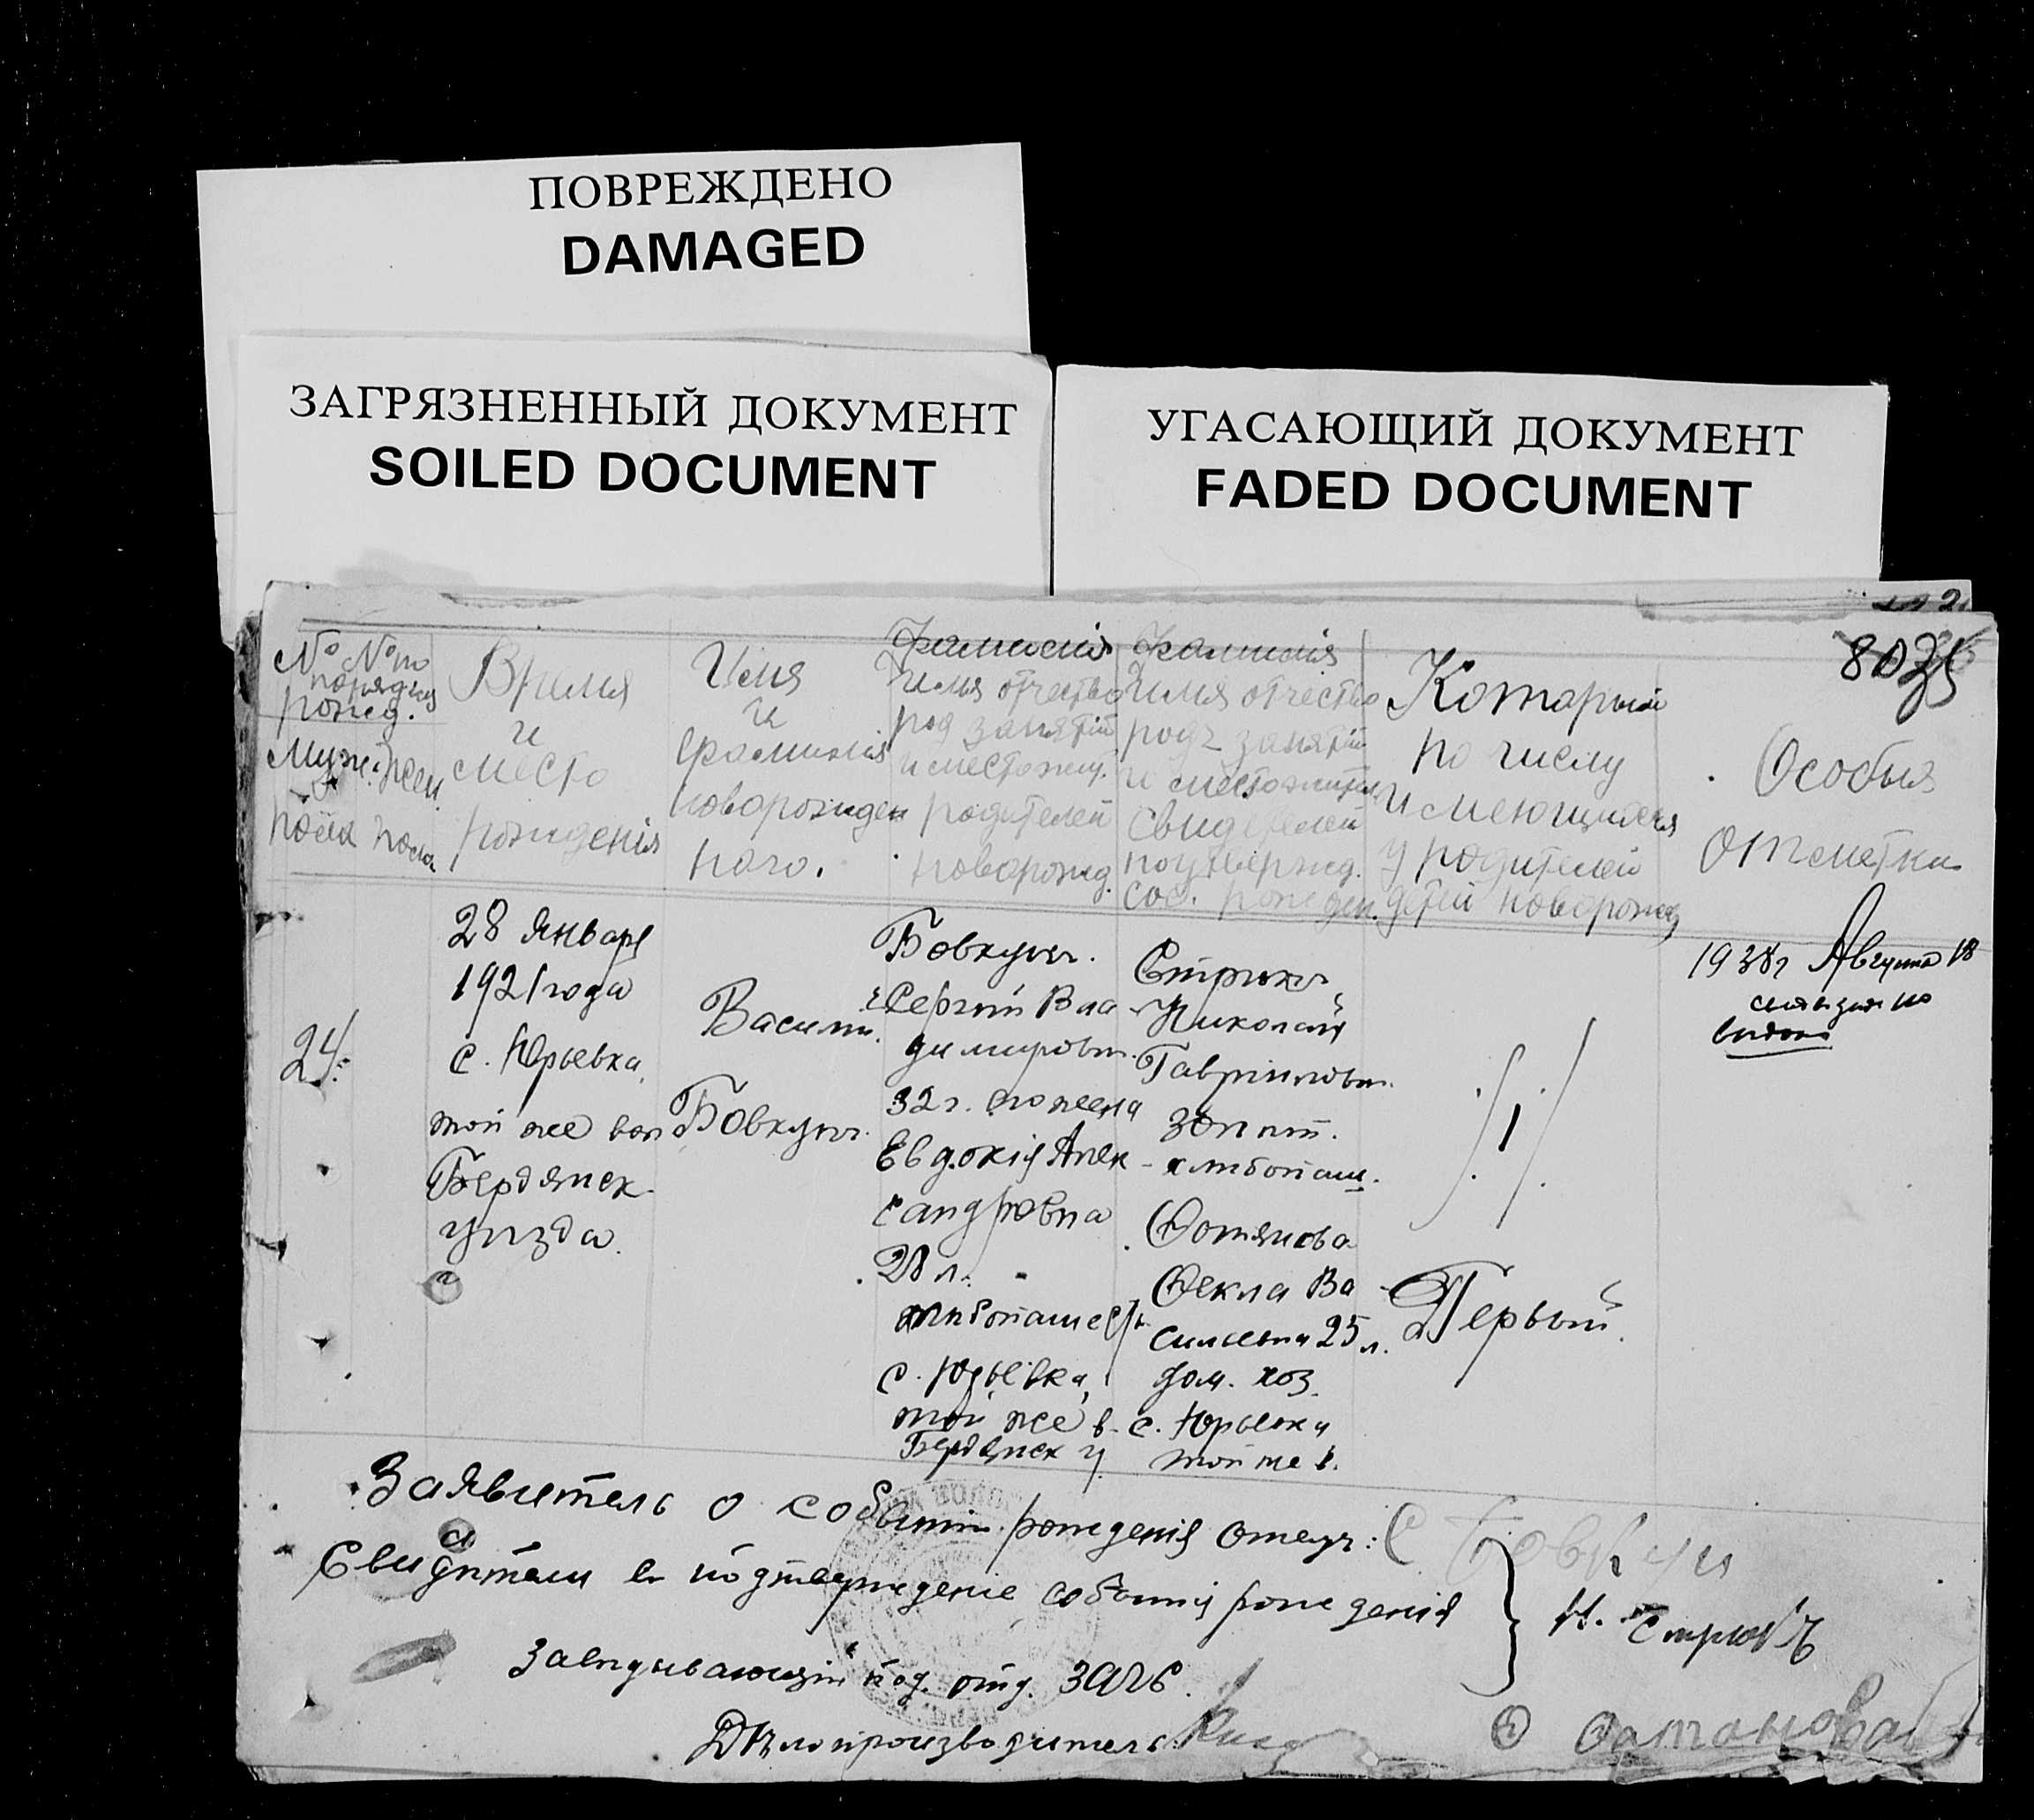 ПОВРЕЖДЕНО
DAMAGED
ЗАГРЯЗНЕННЫЙ ДОКУМЕНТ
SOILED DOCUMENT
УГАСАЮЩИЙ ДОКУМЕНТ
FADED DOCUMENT
№ №по
порядка
рожд.
Муж. Жен.
пола пола
Время
и
место
рожденія
Имя
и
фамилія
новорожден
наго.
Фамилія
Имя отчество
род занятій
и местожит.
родителей
новорожд.
Фамилія
Имя отчество
родъ занятій
и местожит
свидетелей
подтвержд.
соб. рожден.
Который
по числу
имеющихся
у родителей
детей новорожд
Особыя
отметки
24.
28 Января
1921 года
с. Юрьевка,
той же вол
Бердянск.
уѣзда.
Василій.
Бовкунъ.
Бовкунъ.
Сергѣй Вла
димиров.
32 г. его жена
Евдокія Алек
сандровна
28 л.
хлѣбопашест
с. Юрьевка,
той же в.
Бердянск у
Стрюкъ
Николай
Гавриилов.
30 лѣт.
хлѣбопаш.
Фотянова
Фекла Ва
сильевна 25 л.
дом. хоз.
с. Юрьевка
той же в.
1
Первый.
1938г Августа 18
Заявитель о событіи рожденія отецъ: С Бовкун
Свидѣтели въ подтвержденіе событія рожденія
Н. Стрюкъ
Завѣдывающій под. отд. ЗАГС.
Дѣлопроизводитель